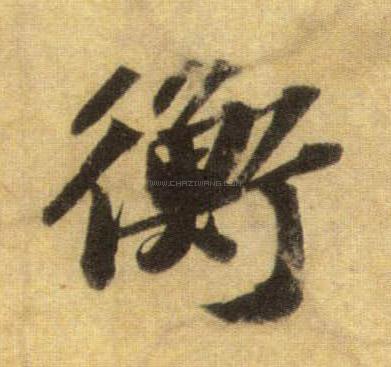 衡
WWW.CHAZIWANG.COM